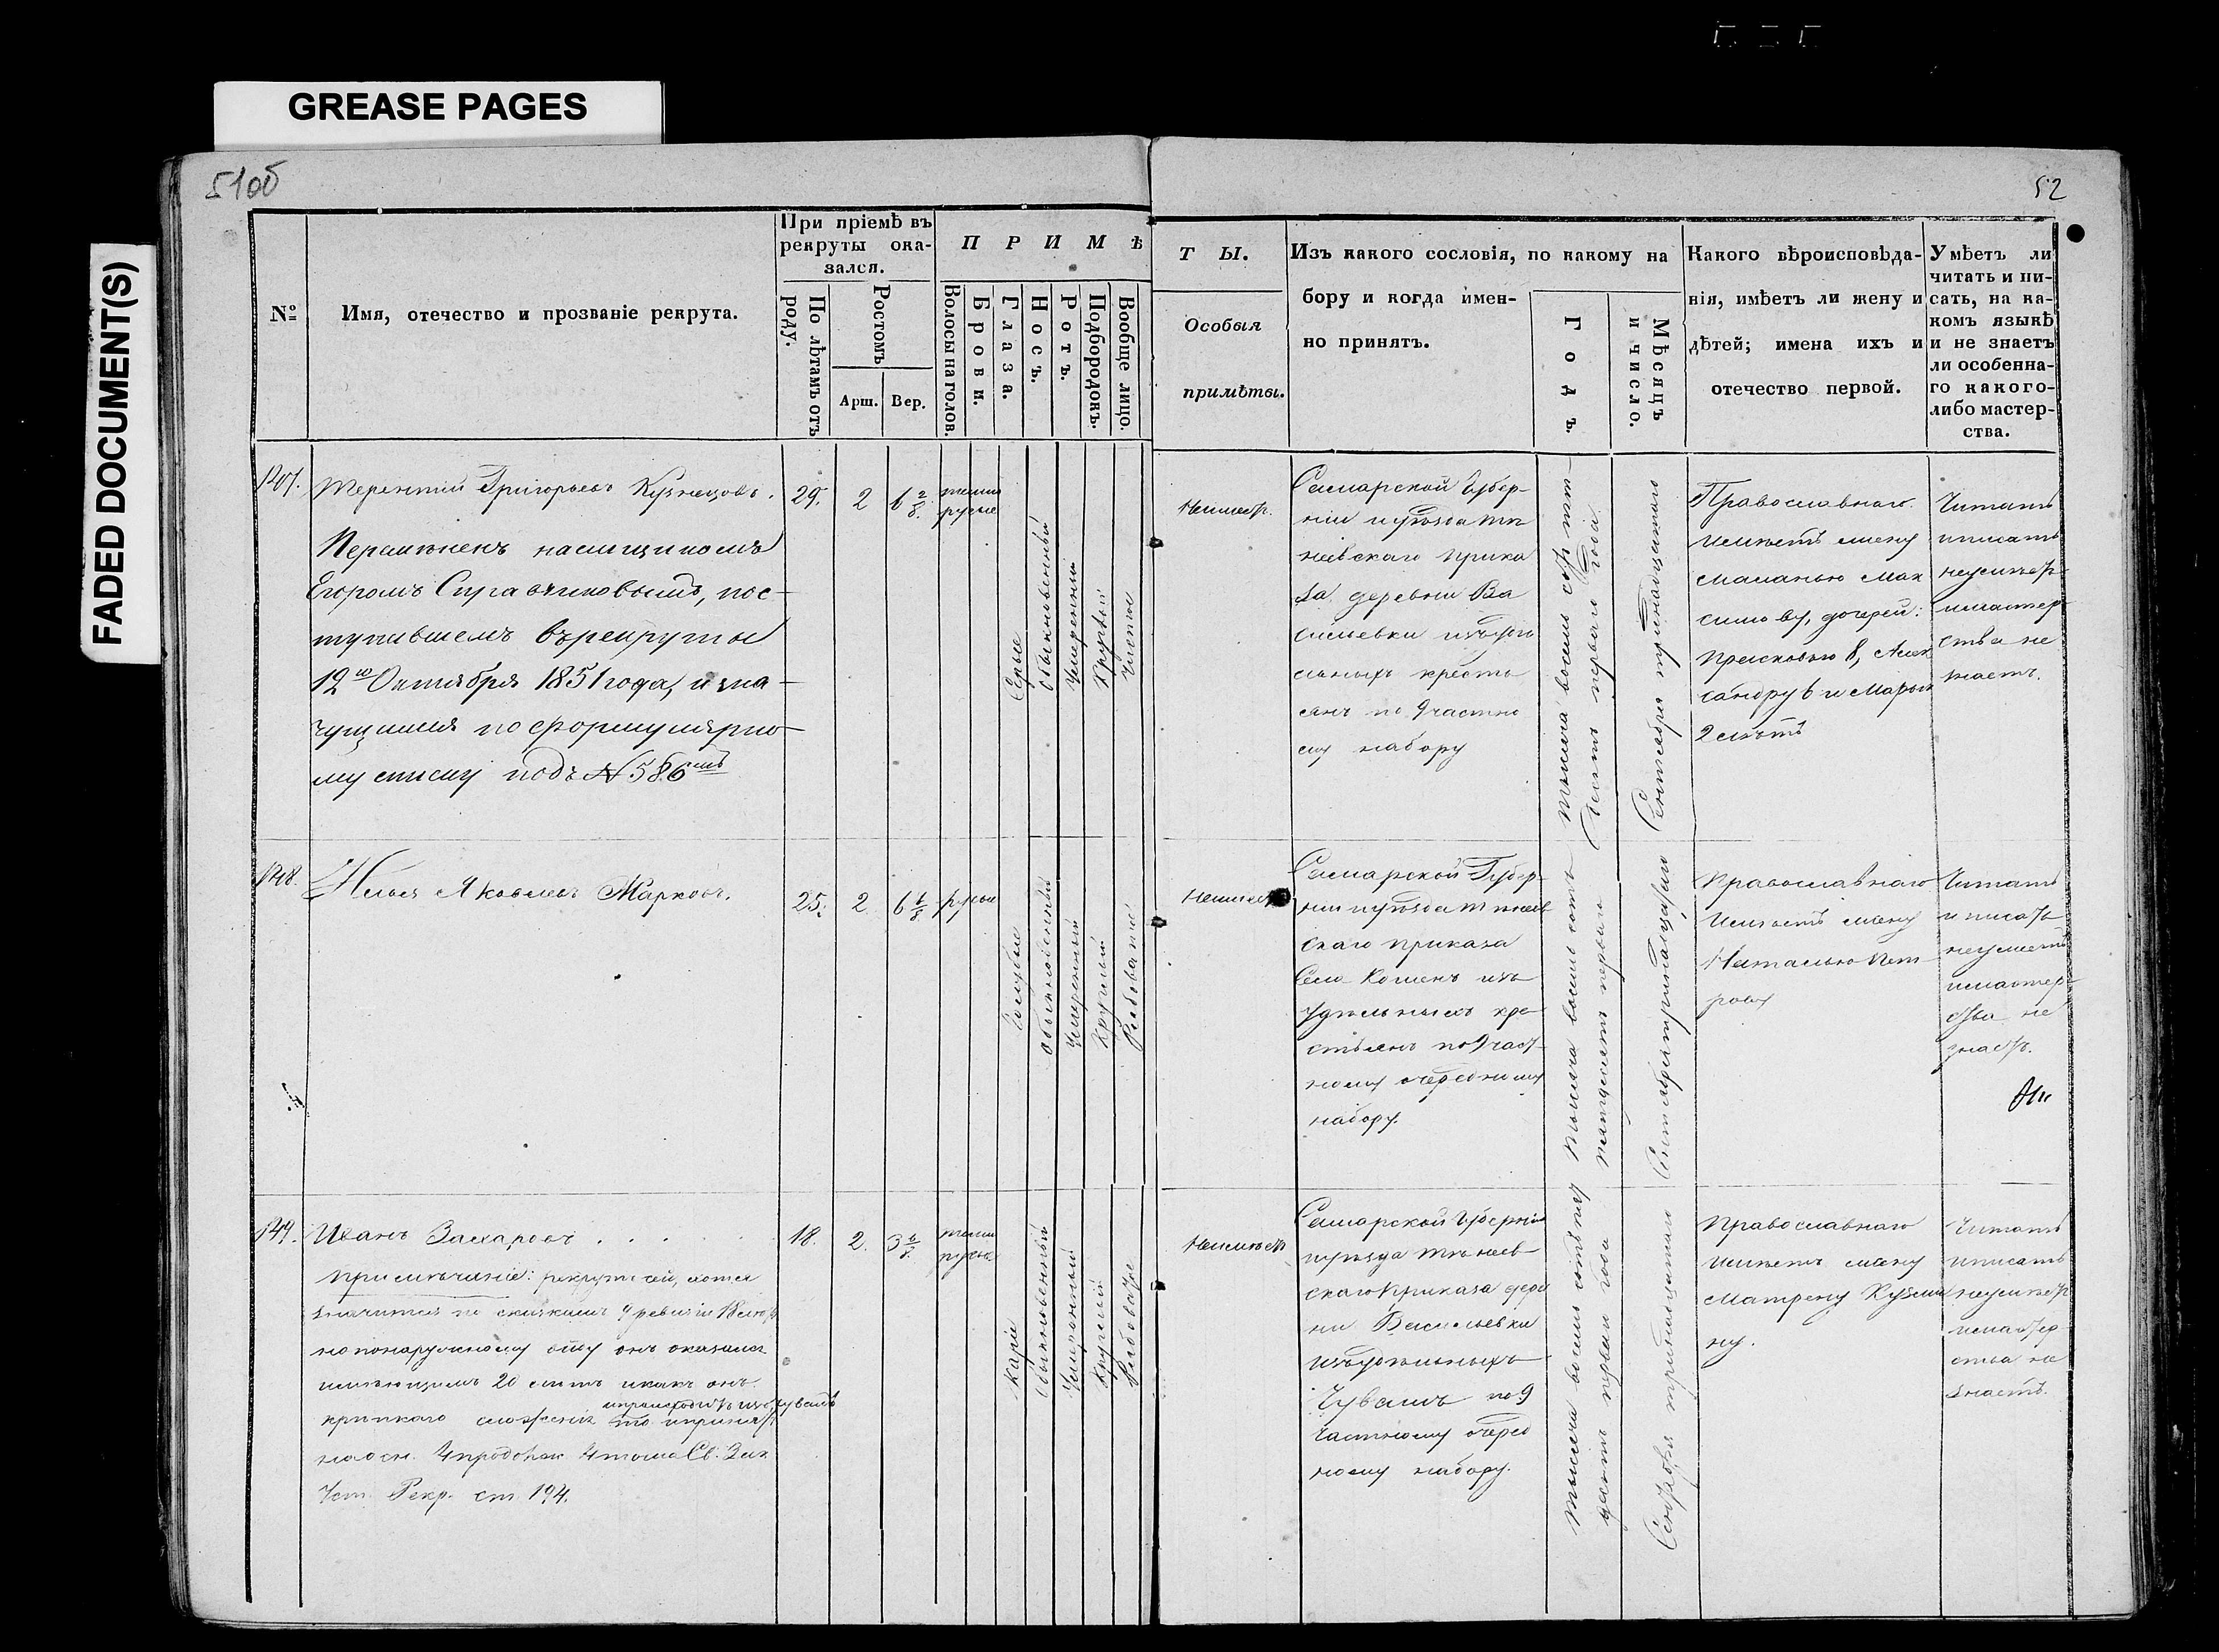 GREASE PAGES
FADED DOCUMENT(S)
51об
52
№
Имя, отечество и прозваніе рекрута.
При пріемѣ въ
рекруты ока-
зался.
По лѣтамъ отъ
роду.
Ростомъ
Арш.
Вер.
П Р И М Ѣ
Волосы на голов.
Брови.
Глаза.
Носъ.
Ротъ.
Подбородокъ.
Вообще лицо.
Т Ы.
Особыя
примѣты.
Изъ какого сословія, по какому на
бору и когда имен-
но принятъ.
Годъ.
Мѣсяцъ
и число.
Какого вѣроисповѣда-
нія, имѣетъ ли жену и
дѣтей; имена ихъ и
отечество первой.
Умѣетъ ли
читать и пи-
сать, на ка-
комъ языкѣ
и не знаетъ
ли особенна-
го какого-
либо мастер-
ства.
Терентій Григорьевъ Кузнецовъ.
Перемѣненъ наемщикомъ
Егоромъ, пос-
тупившемъ въ рекруты
12го Октября 1851 года, и зна-
чущимся по формулярно-
му списку подъ № 586мъ
29.
2
6 2/8.
темно
русые
Сѣрые
Обыкновенный
Умеренный
Круглый
Чистое
Неимеет.
Самарской Губер-
ніи
приказа
деревни Ва
сильевки изъ удѣ
льныхъ кресть
янъ по 9 частно
му набору
Тысяча восемь сотъ пят-
десятъ перваго года
Сентября тринадцатаго
Православнаго
имѣетъ жену
Маланью Мак
симову, дочерей:
Прасковью 8, Алек
сандру 6 и Марью
2 лѣтъ
Читать
и писать
неумѣетъ
и мастер-
ства не
знаетъ.
148.
Илья Яковлевъ Марковъ.
25.
2
6 6/8
русые
Голубые
Обыкновенный
Умеренный
Круглый
Рябоватое
Неимеет
Самарской Губер-
ніи
скаго приказа
села изъ
удѣльныхъ кре-
стьянъ по 9 част-
ному очередному
набору.
Тысяча восемь сотъ
пятдесятъ перваго
Сентября тринадцатаго
Православнаго
имѣетъ жену
Наталью Пет-
рову
Читать
и писать
неумеетъ
и мастер-
ства не
знаетъ.
149.
Иванъ Захаровъ . . . .
Примѣчаніе: рекрутъ сей, хотя и
значится по сказкамъ 9 ревизіи 18 лѣтъ
но по наружному виду онъ оказался
имѣющимъ 20 лѣтъ и какъ онъ
происходитъ изъ чувашъ
крѣпкаго сложенія то и принятъ
на осн. 4 прод. 4 тома Св. Зак.
Уст. Рекр. ст. 194.
18.
2.
3 6/8
темно
русые
Каріе
Обыкновенный
Умеренный
Круглый
Рябоватое
Неимѣетъ
Самарской Губерніи
скаго Приказа дерев
ни Васильевки
изъ удѣльныхъ
Чувашъ по 9
частному очеред
ному набору.
Тысяча восемь сотъ пят
десятъ перваго года
Сентября тринадцатаго
Православнаго
имѣетъ жену
Матрену Кузми
ну.
Читать
и писать
неумѣетъ
и мастер
ства не
знаетъ.